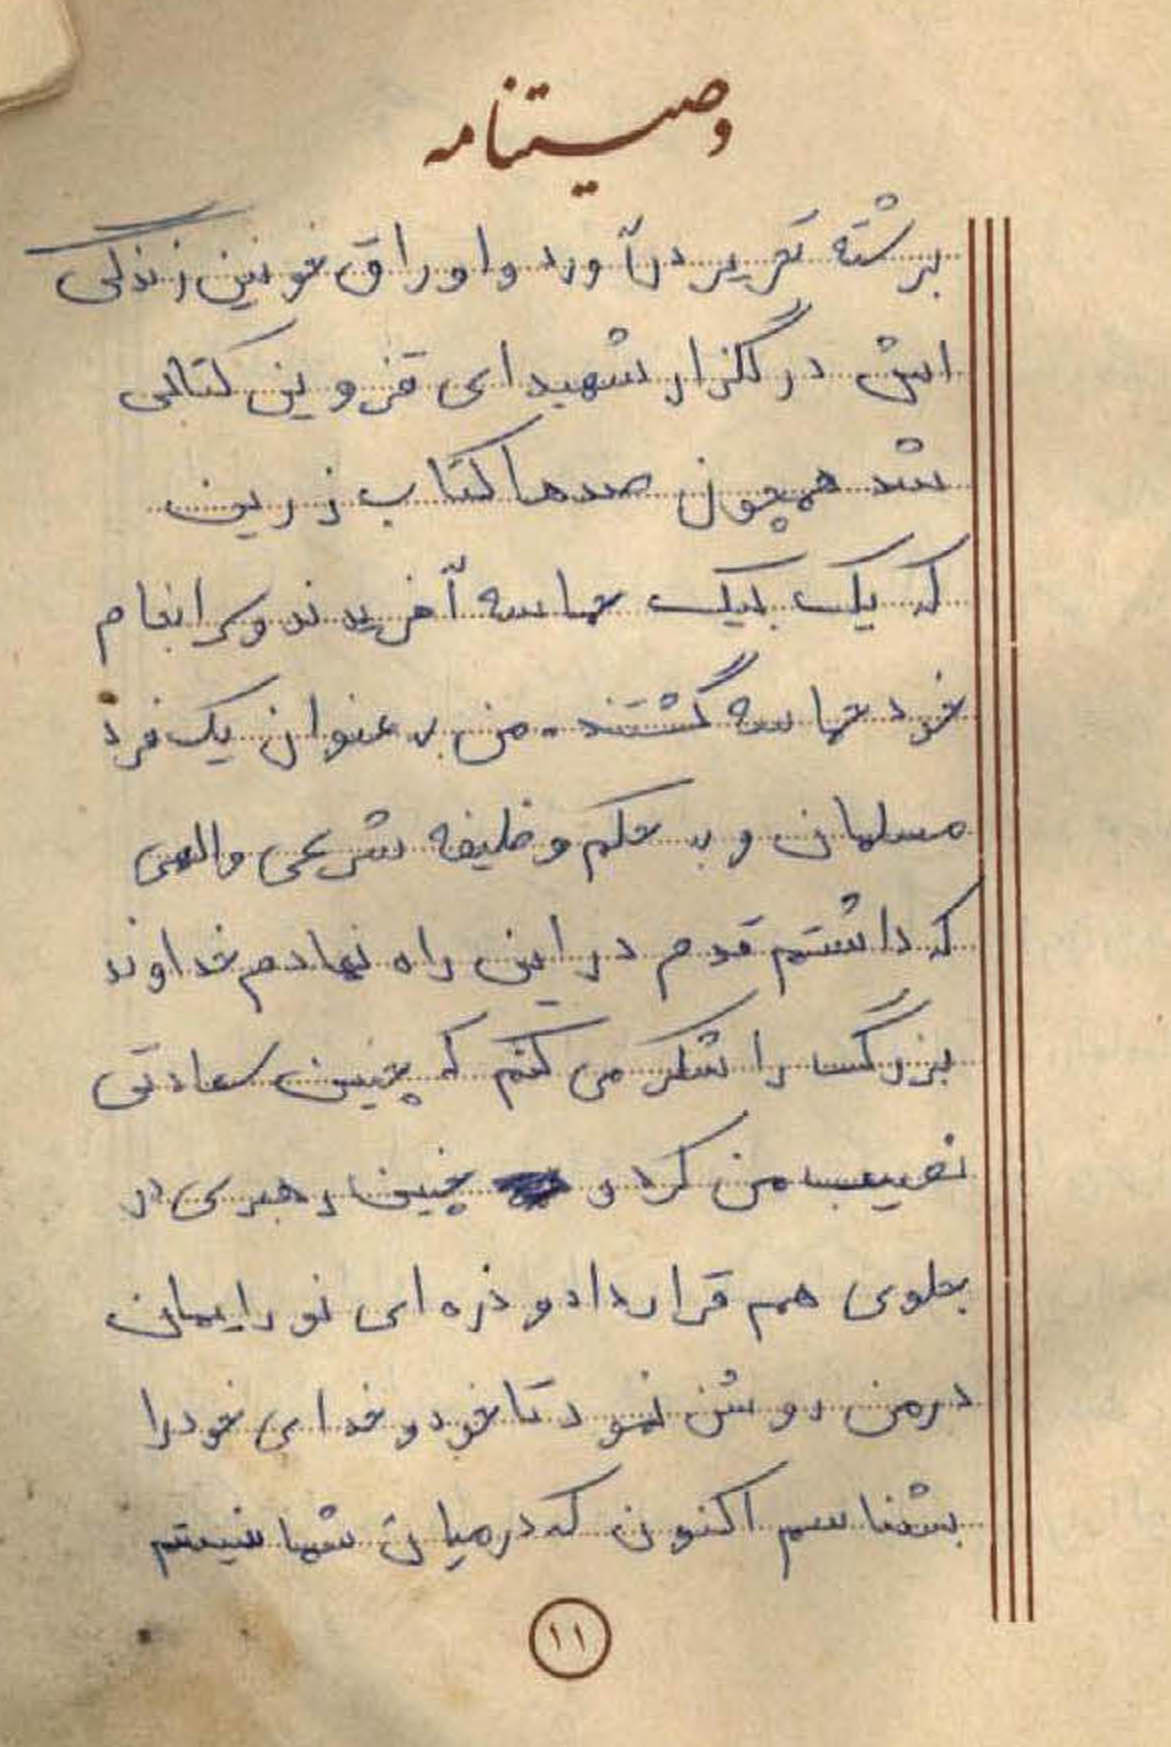 وصیتنامه
برشته تحریر درآورد و اوراق خونین زندگی
اش در گلزار شهدای قزوین کتابی
شد همچون صدها کتاب زرین
که یک بیک حماسه آفریدند و سرانجام
خود حماسه گشتند. من به عنوان یک فرد
مسلمان و به حکم وظیفه شرعی و الهی
که داشتم قدم در این راه نهادم خداوند
بزرگ را شکر می کنم که چنین سعادتی
نصیب من کرد و چنین رهبری در
جلوی هم قرار داد و ذره ای نور ایمان
در من روشن نمود تا خود و خدای خود را
بشناسم اکنون که در میان شما نیستم
۱۱